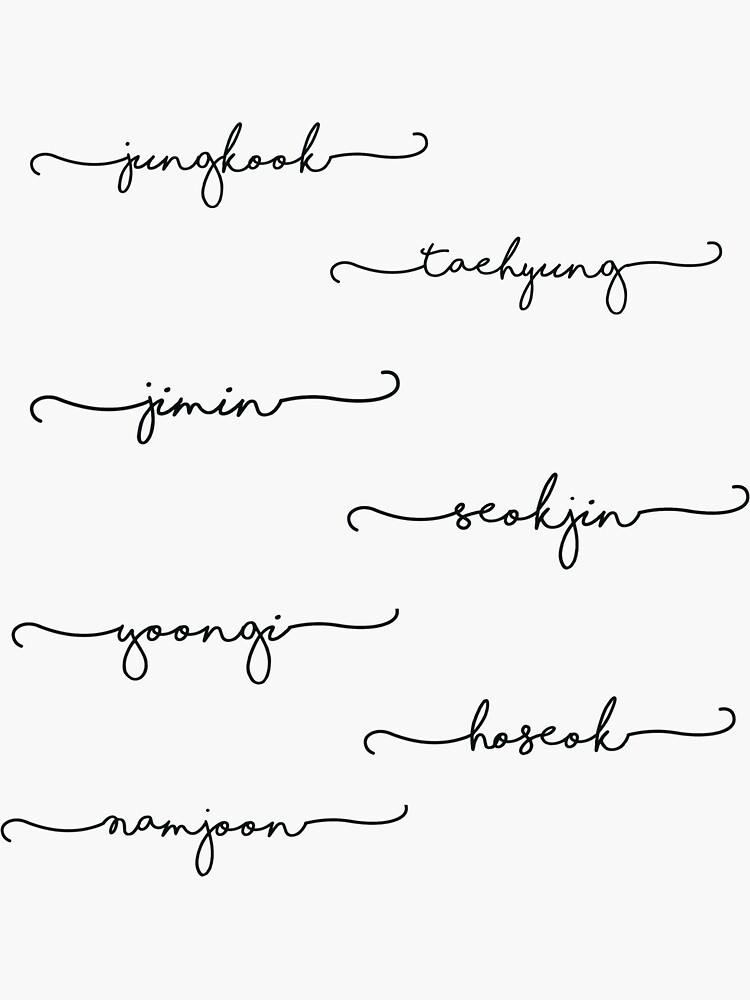 jungkook
taehyung
jimin
seokjin
yoongi
hoseok
namjoon